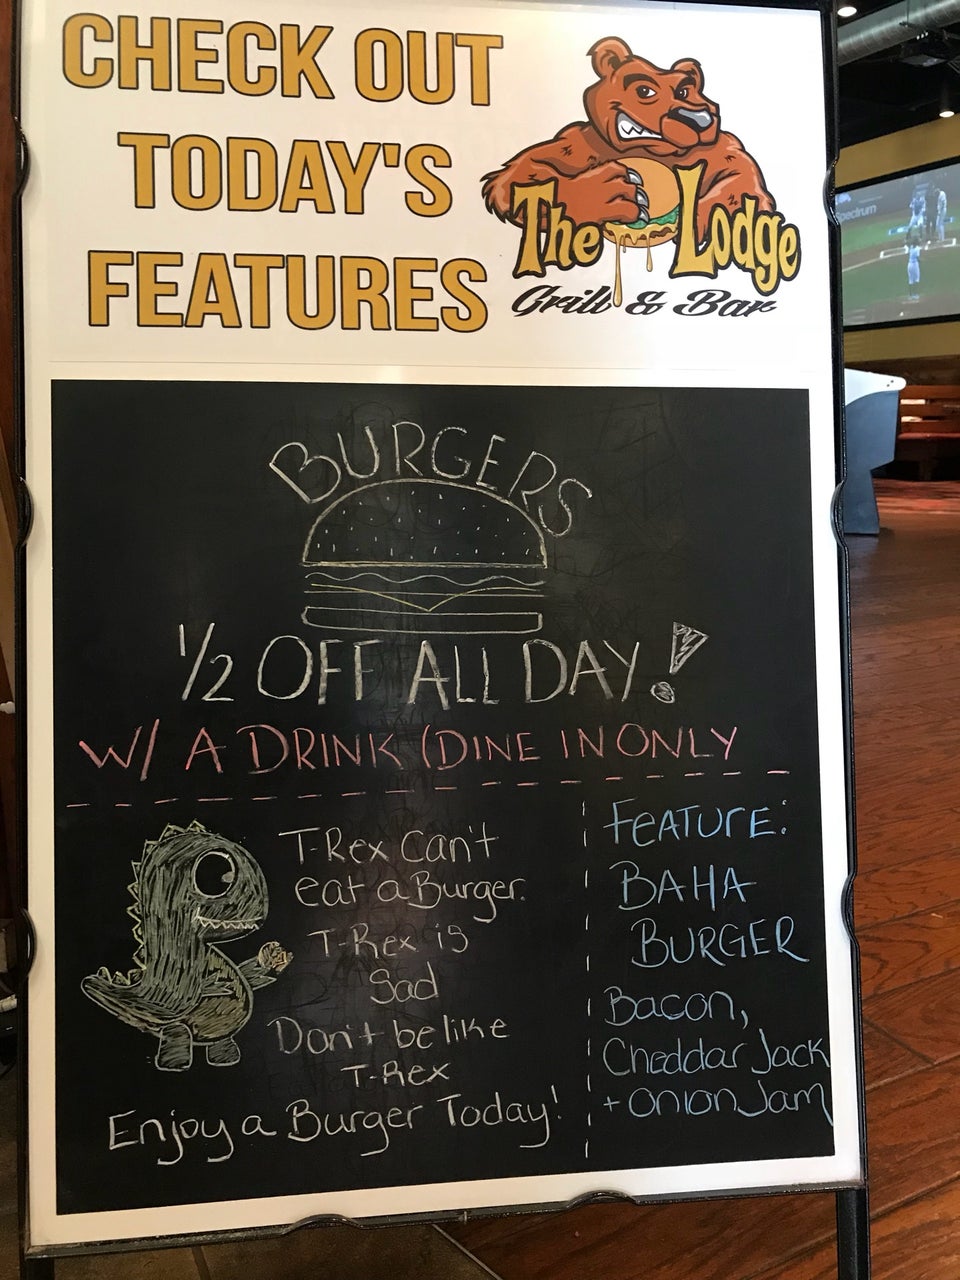 CHECK OUT
TODAY'S
FEATURES
The Lodge
Grill & Bar
Spectrum
BURGERS
1/2 OFF ALL DAY!
W/ A DRINK (DINE IN ONLY
T-Rex Can't
eat a Burger.
T-Rex is
Sad
Don't be like
T-Rex
Enjoy a Burger Today!
FEATURE:
BAHA
BURGER
Bacon,
Cheddar Jack
+ onion Jam